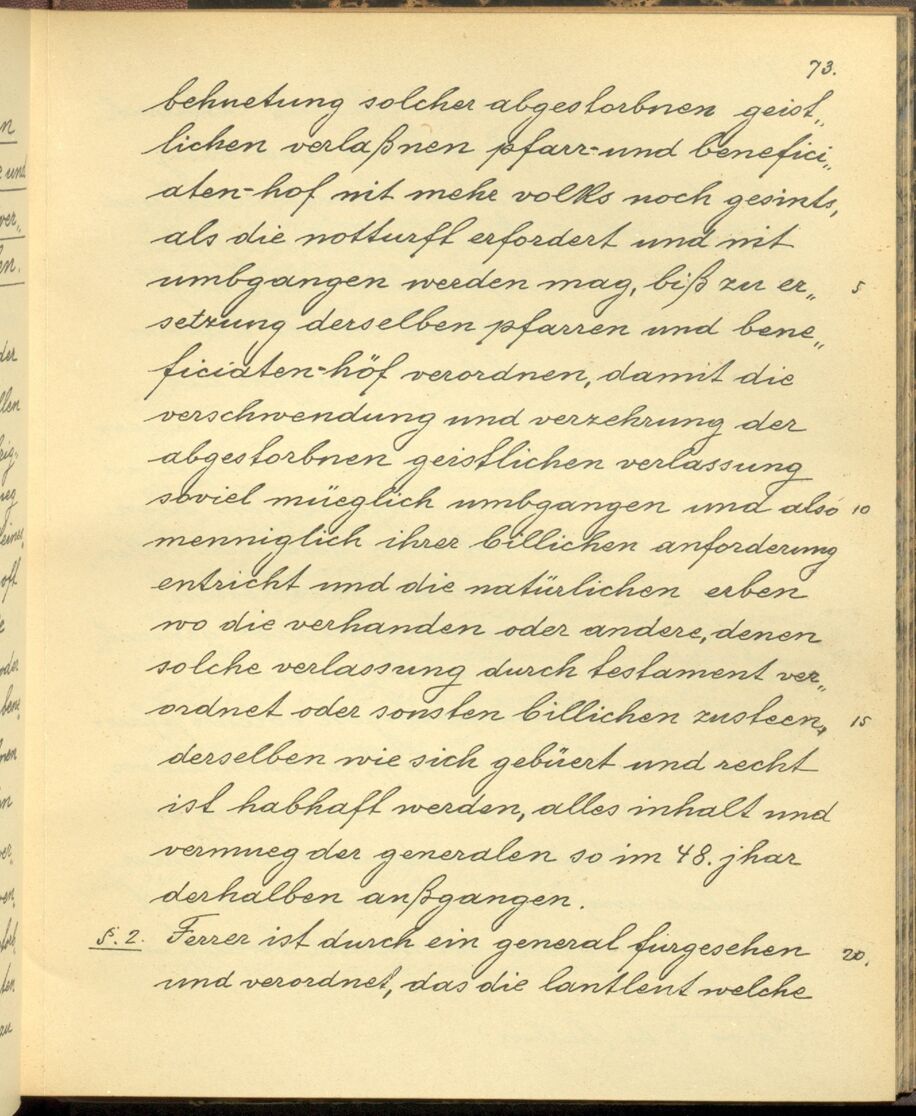 73.
behuetung solcher abgestorbnen geist„
lichen verlaßnen pfarr- und benefici„
aten-hof nit mehr volks noch gesints,
als die notturft erfordert und nit
umbgangen werden mag, biß zu er„ 5
setzung derselben pfarren und bene„
ficiaten-höf verordnen, damit die
verschwendung und verzehrung der
abgestorbnen geistlichen verlassung
soviel müeglich umbgangen und also 10
menniglich ihrer billichen anforderung
entricht und die natürlichen erben
wo die verhanden oder andere, denen
solche verlassung durch testament ver„
ordnet oder sonsten billichen zusteen, 15
derselben wie sich gebüert und recht
ist habhaft werden, alles inhalt und
vermueg der generalen so im 48. jhar
derhalben außgangen.
§. 2. Ferrer ist durch ein general fürgesehen 20.
und verordnet, das die lantleut welche